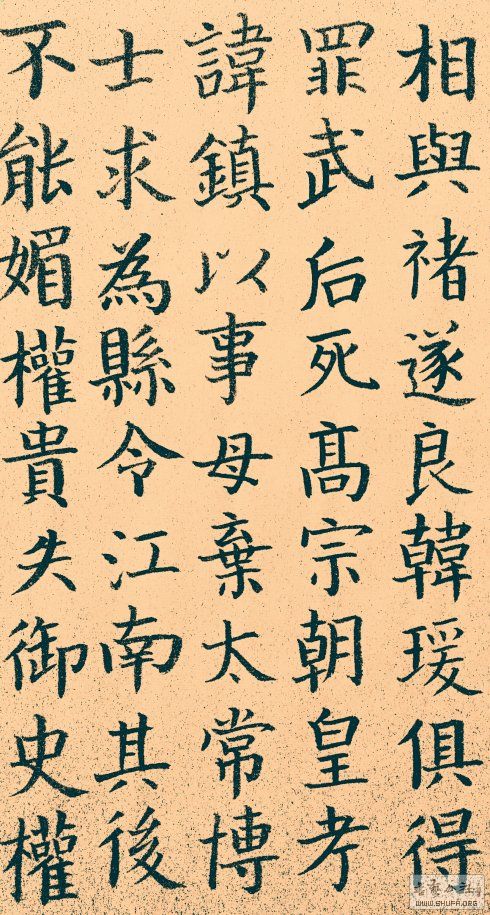 相與褚遂良韓瑗俱得
罪武后死髙宗朝皇考
諱鎮以事母棄太常博
士求為縣令江南其後
不能媚權貴失御史權
WWW.SHUFA.ORG